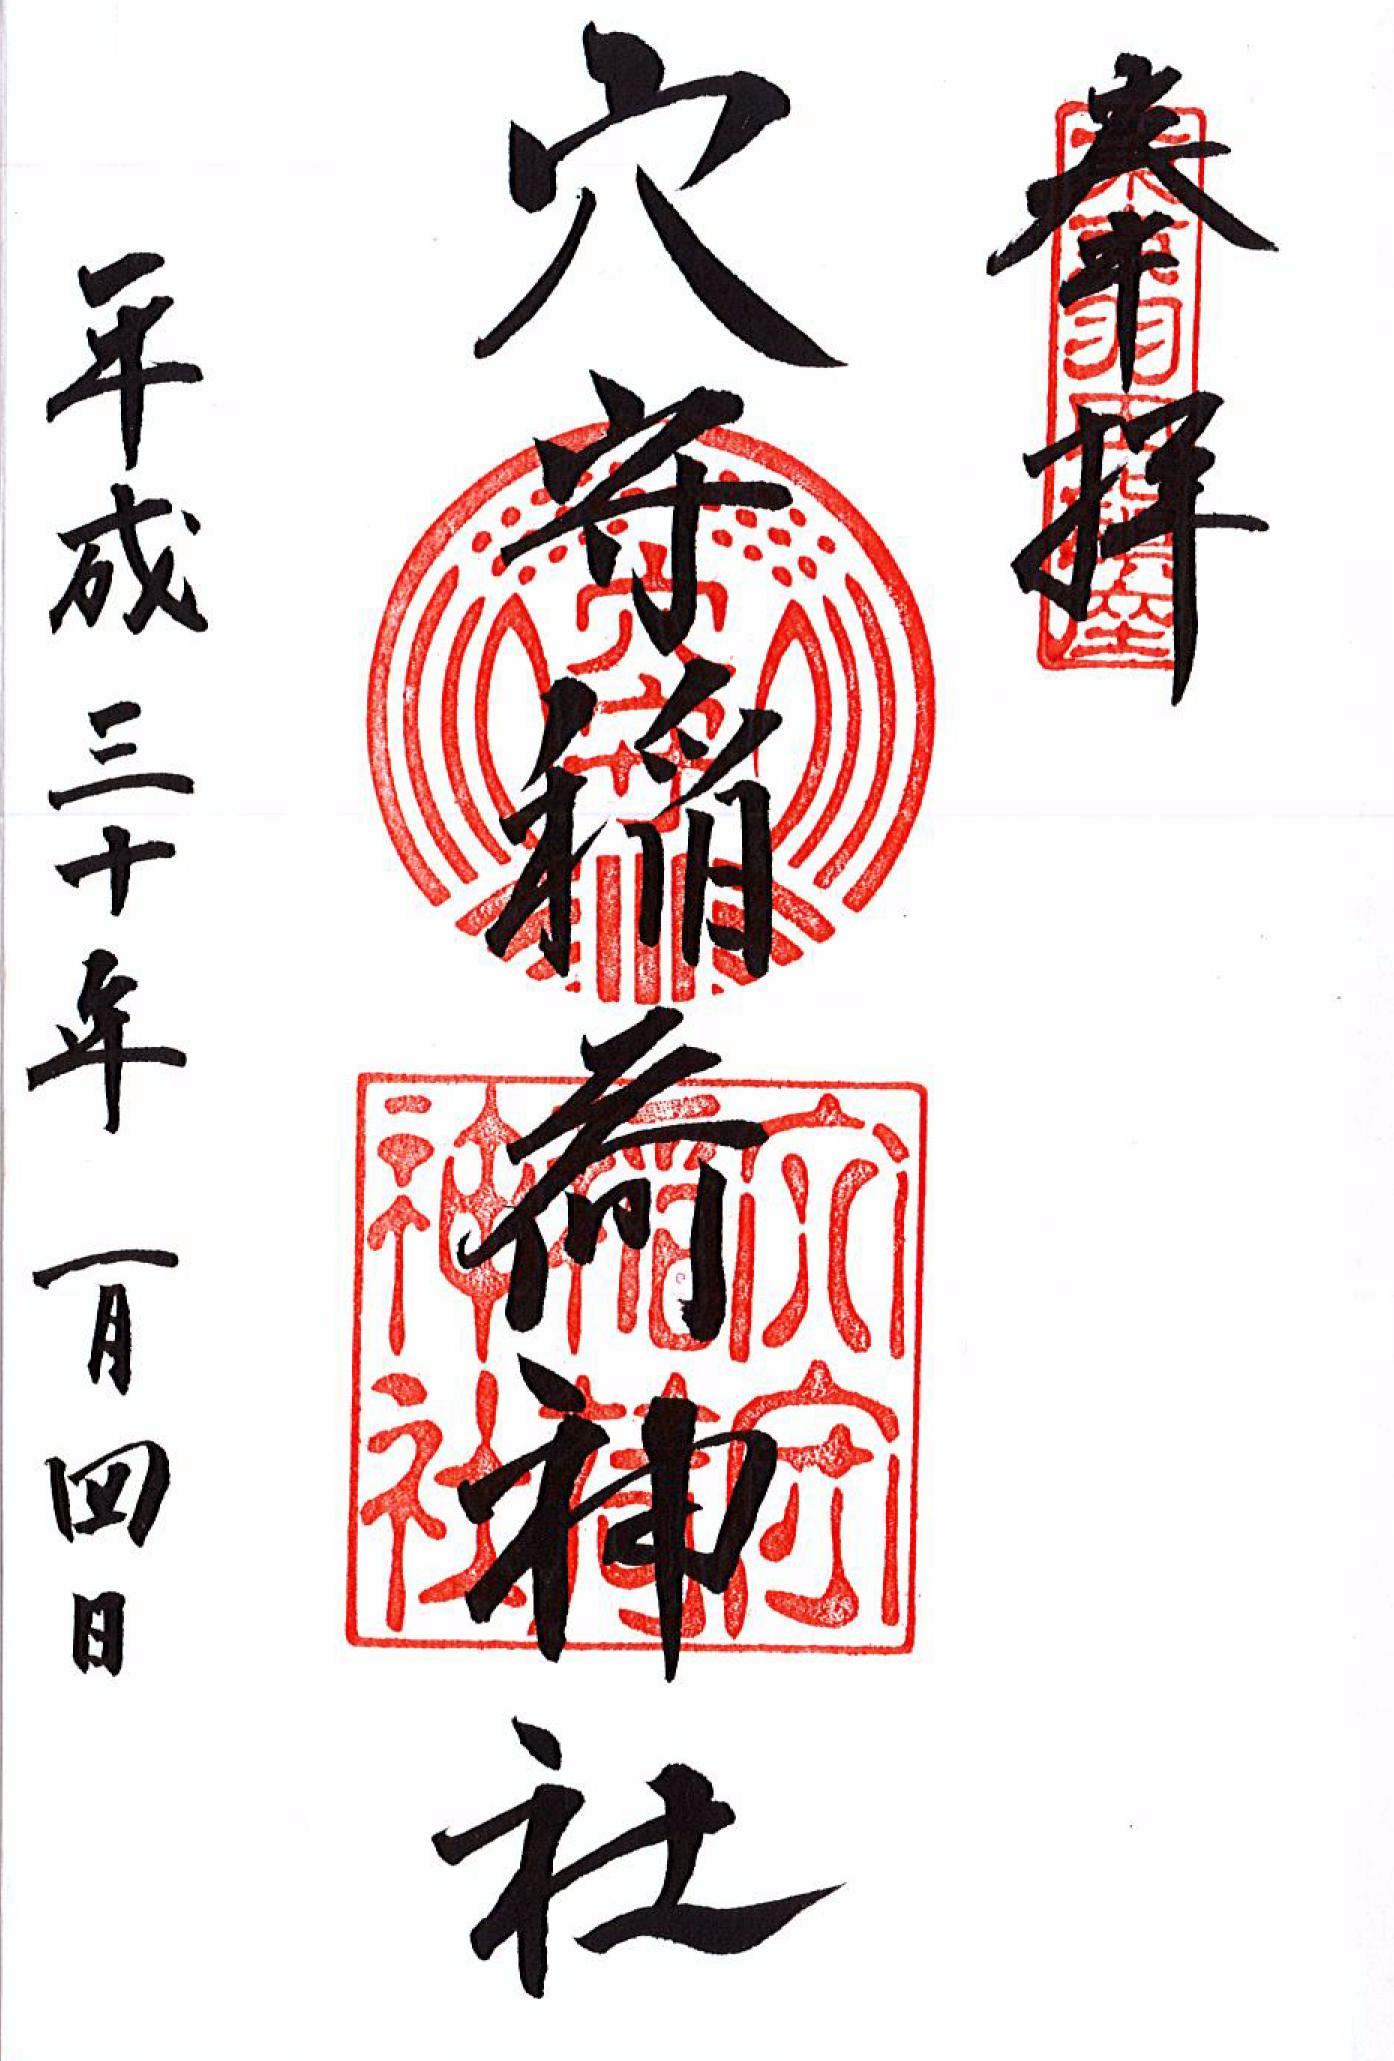 奉拝
穴守稲荷神社
平成三十年一月四日
穴守
穴守
稲荷
神社